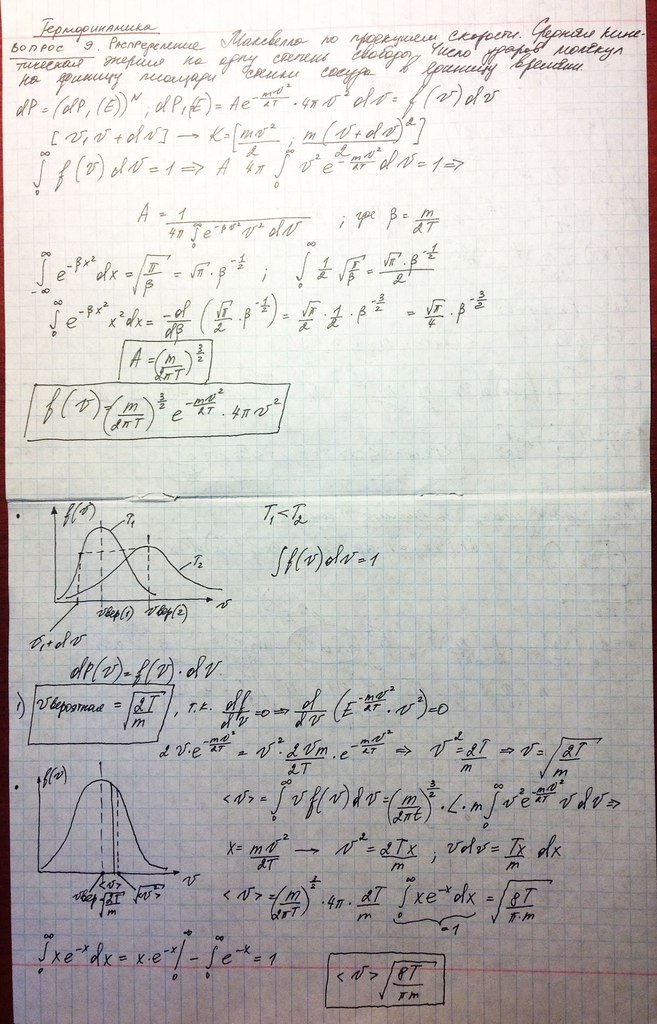 Термодинамика
Вопрос 9. Распределение Максвелла по проекциям скорости. Средняя кине-
тическая энергия на одну степень свободы. Число ударов молекул
на единицу площади стенки сосуда в единицу времени.
dP = (dP₁(E))^N ; dP₁(E) = A e^{-mv²/2T} · 4πv² dv = f(v) dv
[v, v + dv] → K = [mv²/2, m(v+dv)²/2]
∫₀^∞ f(v) dv = 1 ⇒ A 4π ∫₀^∞ v² e^{-mv²/2T} dv = 1 ⇒
A = 1/(4π ∫₀^∞ e^{-βv²} v² dv) ; где β = m/2T
∫_{-∞}^∞ e^{-βx²} dx = √(π/β) = √π · β^{-1/2} ; ∫₀^∞ 1/2 √(π/β) = √π · β^{-1/2}/2
∫₀^∞ e^{-βx²} x² dx = -d/dβ (√π/2 · β^{-1/2}) = √π/2 · 1/2 · β^{-3/2} = √π/4 · β^{-3/2}
A = (m/2πT)^{3/2}
f(v) = (m/2πT)^{3/2} e^{-mv²/2T} · 4πv²
f(v) T₁ T₂ T₁ < T₂
∫ f(v) dv = 1
vвер(1) vвер(2) v
v₁ + dv
dP(v) = f(v) · dv
1) vвероятная = √(2T/m) , т.к. df/dv = 0 ⇒ d/dv (E^{-mv²/2T} · v²) = 0
2v · e^{-mv²/2T} = v² · 2vm/2T · e^{-mv²/2T} ⇒ v² = 2T/m ⇒ v = √(2T/m)
f(v)
<v> = ∫₀^∞ v f(v) dv = (m/2πt)^{3/2} · L · m ∫₀^∞ v² e^{-mv²/2T} v dv ⇒
x = mv²/2T → v² = 2Tx/m ; v dv = Tx/m dx
vвер = √(2T/m) <v> √<v²> v
<v> = (m/2πT)^{1/2} · 4π · 2T/m ∫₀^∞ x e^{-x} dx = √(8T/π·m)
=1
∫₀^∞ x e^{-x} dx = x · e^{-x} |₀^∞ - ∫₀^∞ e^{-x} = 1
<v> √(8T/πm)